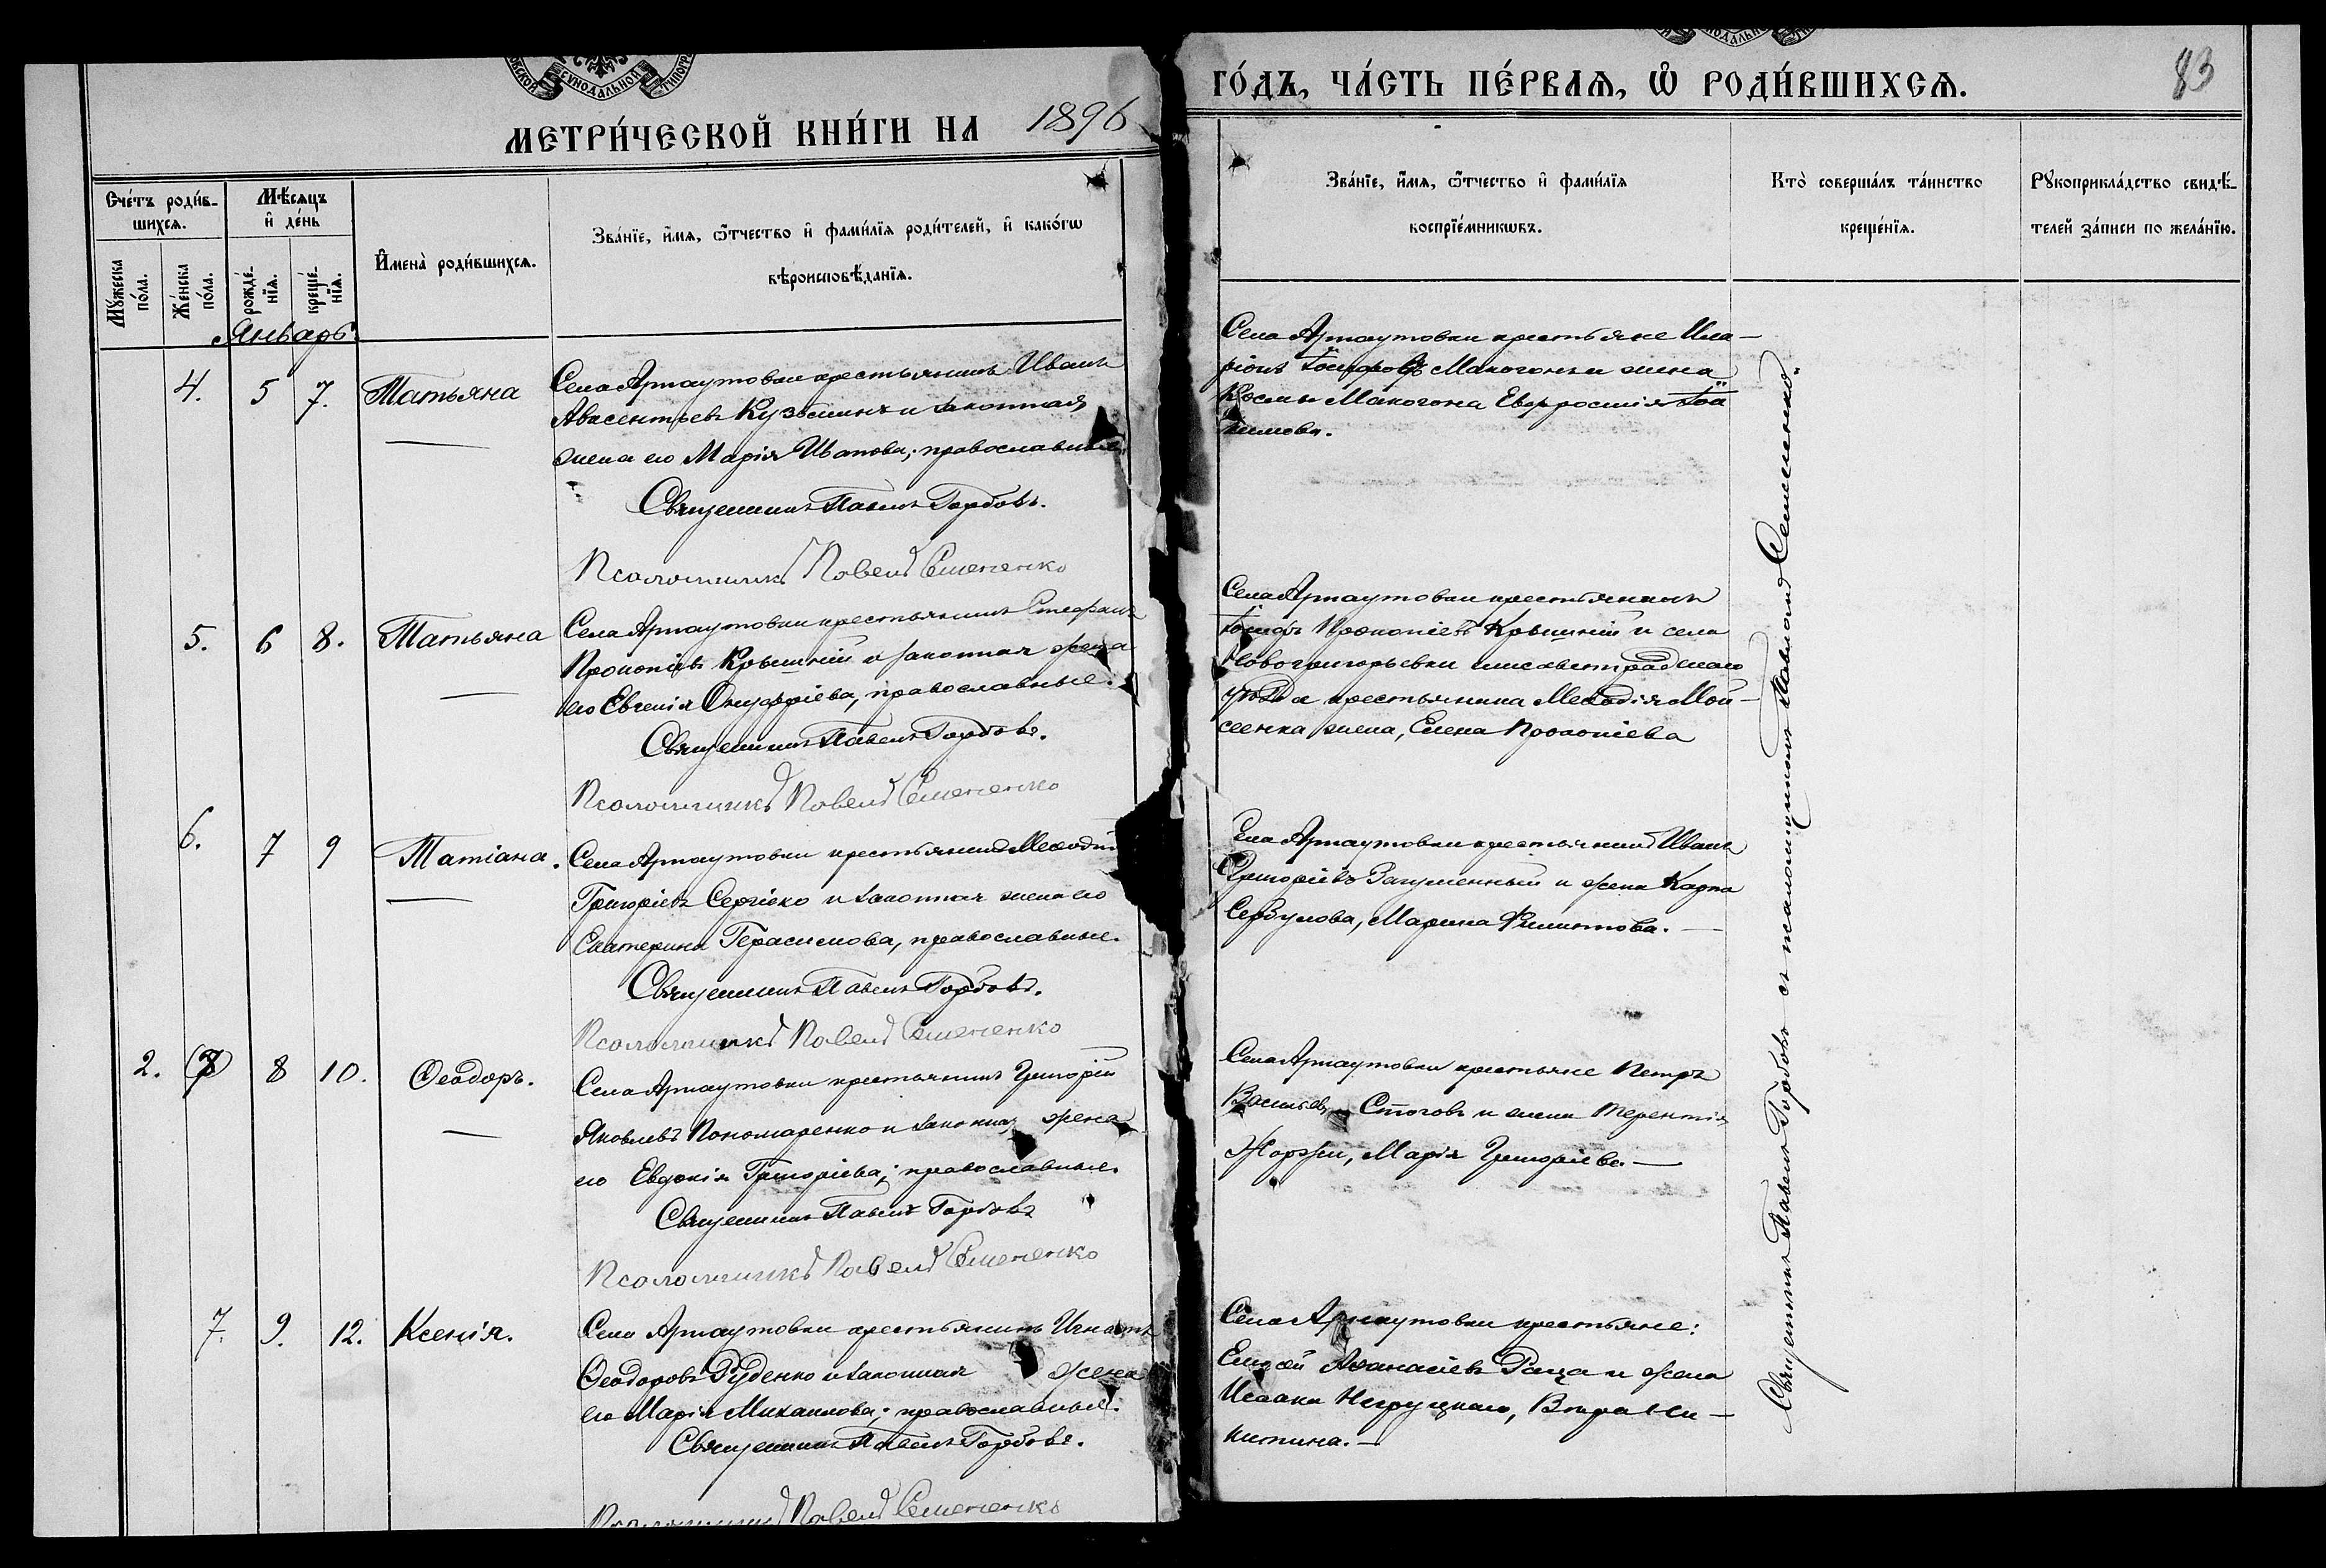 МЕТРИ́ЧЕСКОЙ КНИ́ГИ НА 1896
ГО́ДЪ, ЧА́СТЬ ПЕ́РВАѦ, Ѿ РОДИ́ВШИХСѦ.
83
Сче́тъ роди́в-
шихсѧ.
Мѣ́сѧцъ
и҆ де́нь
Мꙋ́жеска
по́ла.
Же́нска
по́ла.
рожде́-
нїѧ.
креще́-
нїѧ.
И҆мена̀ роди́вшихсѧ.
Зва́нїе, и҆́мѧ, ѻ҆́тчество и҆ фами́лїѧ роди́телей, и҆ како́гѡ
вѣроисповѣ́данїѧ.
Зва́нїе, и҆́мѧ, ѻ҆́тчество и҆ фами́лїѧ
воспрїе́мникѡвъ.
Кто̀ соверша́лъ та́инство
креще́нїѧ.
Рꙋкоприкла́дство свидѣ́-
телей за́писи по жела́нїю.
Январь
4. 5 7. Татьяна
Села Арнаутовки крестьянинъ Иванъ
Авксентьевъ Кузьминъ и законная
жена его Марія Иванова; православные.
Священникъ Павелъ Горбовъ.
Псаломщикъ Павелъ Семененко
Села Арнаутовки крестьяне Ила-
ріонъ Іосифовъ Макогонъ и жена
Космы Макогона Евфросинія Іоа
кимова.
5. 6 8. Татьяна
Села Арнаутовки крестьянинъ Стефанъ
Прокопіевъ Крыжній и законная жена
его Евгенія Онуфріева, православные.
Священникъ Павелъ Горбовъ.
Псаломщикъ Павелъ Семененко
Села Арнаутовки крестьянинъ
Іосифъ Прокопіевъ Крыжній и села
Новогригорьевки елисаветградскаго
уѣзда крестьянина Меѳодія Мой-
сеенка жена, Елена Прокопіева
6. 7 9 Татіана.
Села Арнаутовки крестьянинъ Меѳодій
Григоріевъ Сергіеко и законная жена его
Екатерина Герасимова, православные.
Священникъ Павелъ Горбовъ.
Псаломщикъ Павелъ Семененко
Села Арнаутовки крестьянинъ Иванъ
Григоріевъ Загуменный и жена Карпа
Сербулова, Марина Филиппова.
2. 7 8 10. Ѳеодоръ.
Села Арнаутовки крестьянинъ Григорій
Яковлевъ Пономаренко и законная жена
его Евдокія Григоріева; православные.
Священникъ Павелъ Горбовъ
Псаломщикъ Павелъ Семененко
Села Арнаутовки крестьяне Петръ
Васильевъ Стоговъ и жена Терентія
Марія Григоріева.
7. 9. 12. Ксенія.
Села Арнаутовки крестьянинъ Игнатъ
Ѳеодоровъ Руденко и законная жена
его Марія Михаилова; православные.
Священникъ Павелъ Горбовъ.
Псаломщикъ Павелъ Семененко
Села Арнаутовки крестьяне:
Елисей Аѳанасіевъ и жена
Исаака Негруцкаго, Вѣра Ни-
китина.
Священникъ Павелъ Горбовъ съ псаломщикомъ Павломъ Семененко.